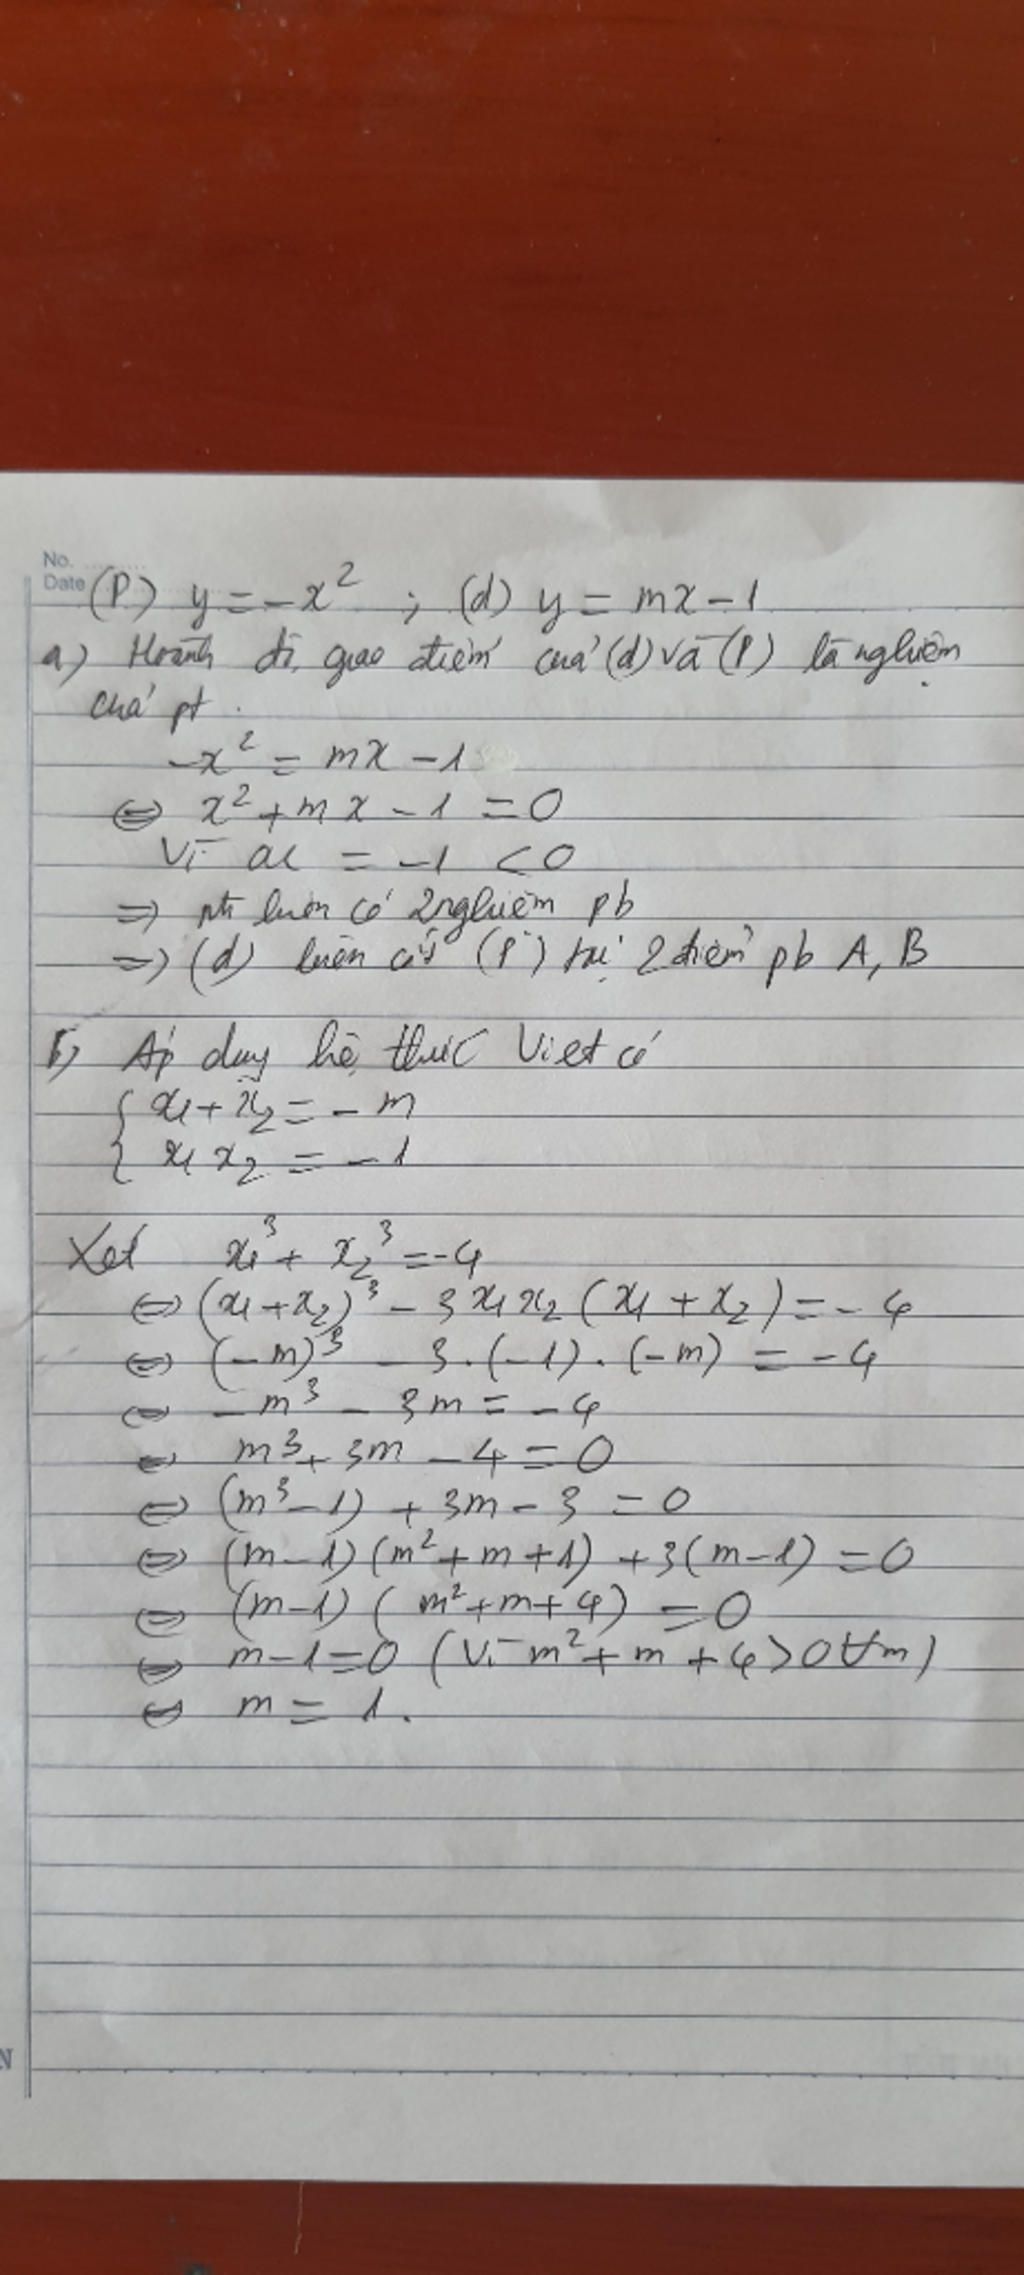 No. ............
Date
(P) y = -x² ; (d) y = mx - 1
a) Hoành độ giao điểm của (d) và (P) là nghiệm
của pt.
-x² = mx - 1
⇔ x² + mx - 1 = 0
Vì ac = -1 < 0
⇒ pt luôn có 2 nghiệm pb
⇒ (d) luôn cắt (P) tại 2 điểm pb A, B
b) Áp dụng hệ thức Viet có
{ x₁ + x₂ = - m
{ x₁ x₂ = - 1
Xét x₁³ + x₂³ = -4
⇔ (x₁ + x₂)³ - 3 x₁ x₂ (x₁ + x₂) = - 4
⇔ (-m)³ - 3 . (-1) . (-m) = -4
⇔ -m³ - 3m = -4
⇔ m³ + 3m - 4 = 0
⇔ (m³ - 1) + 3m - 3 = 0
⇔ (m - 1) (m² + m + 1) + 3(m - 1) = 0
⇔ (m - 1) (m² + m + 4) = 0
⇔ m - 1 = 0 (Vì m² + m + 4 > 0 ∀m)
⇔ m = 1.
N